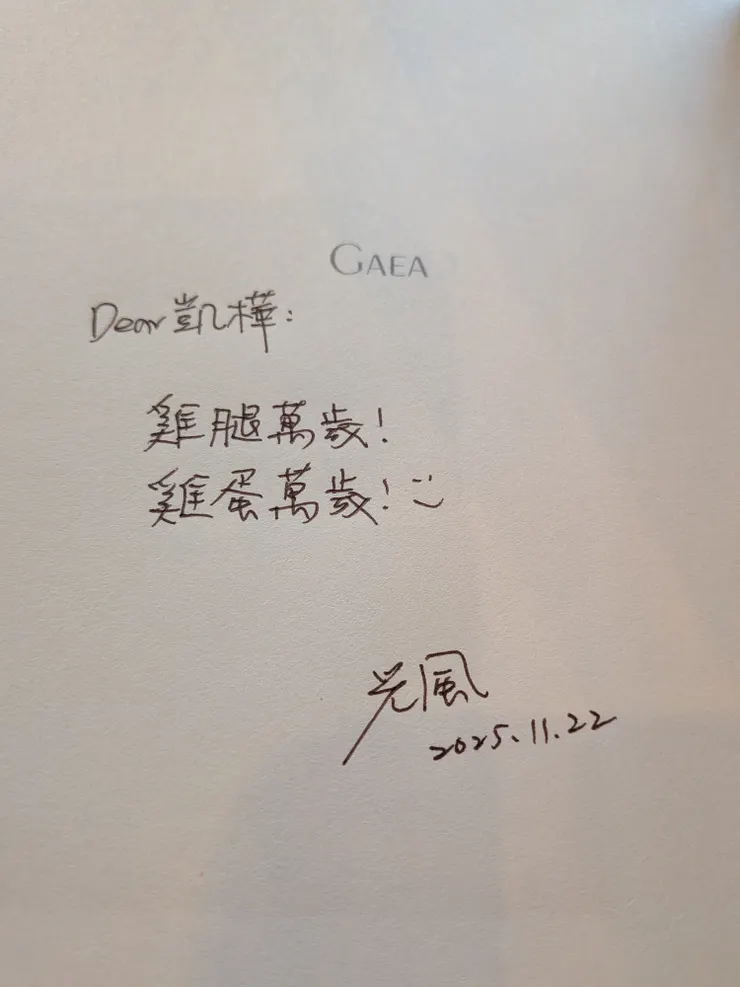 GAEA
Dear 凱樺：
雞腿萬歲！
雞蛋萬歲！:)
光風
2025.11.22